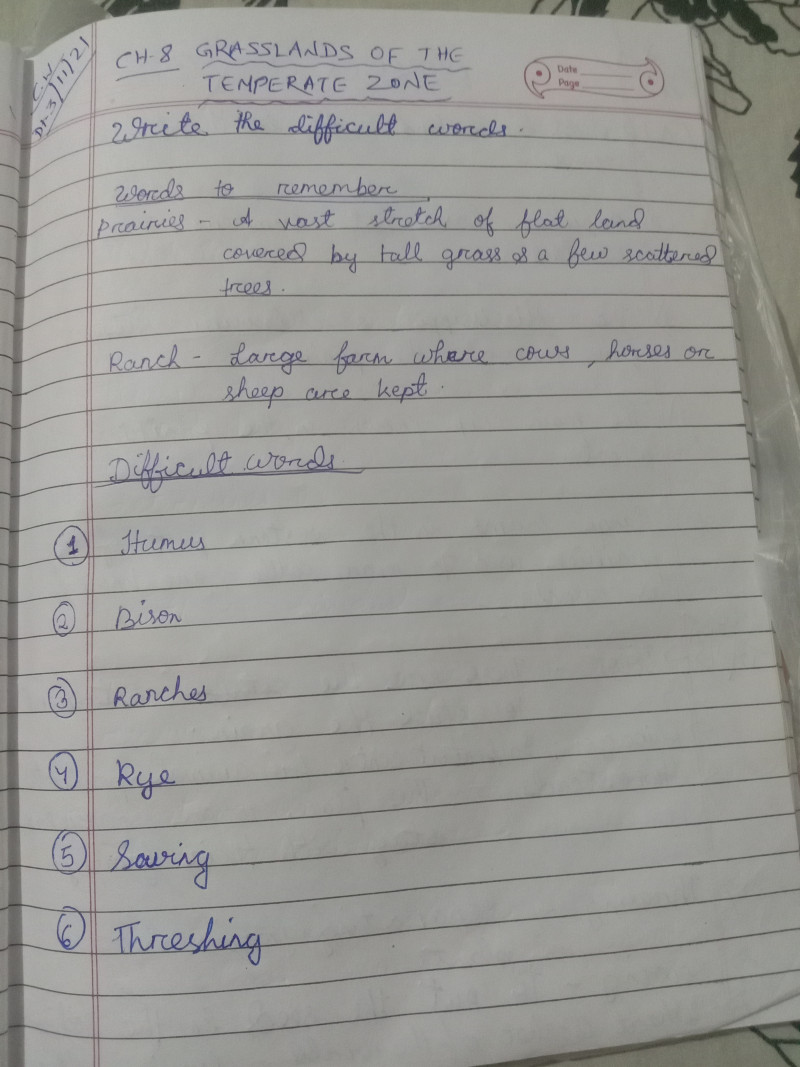 C.W
Dt-3/11/21
CH-8 GRASSLANDS OF THE
TEMPERATE ZONE
Date
Page
Write the difficult words.
Words to remember
Prairies - A vast stretch of flat land
covered by tall grass & a few scattered
trees.
Ranch - Large farm where cows, horses or
sheep are kept.
Difficult words
1 Humus
2 Bison
3 Ranches
4 Rye
5 Sowing
6 Threshing